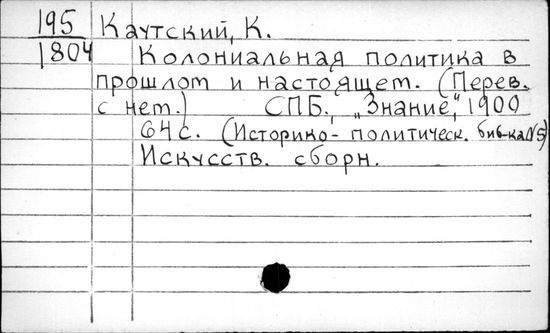 195 Каутский, К.
1804 Колониальная политика в
прошлом и настоящем. (Перев.
с нем.) СПБ., „Знание", 1900
64 с. (Историко-политическ. биб-ка №5)
Искусств. сборн.